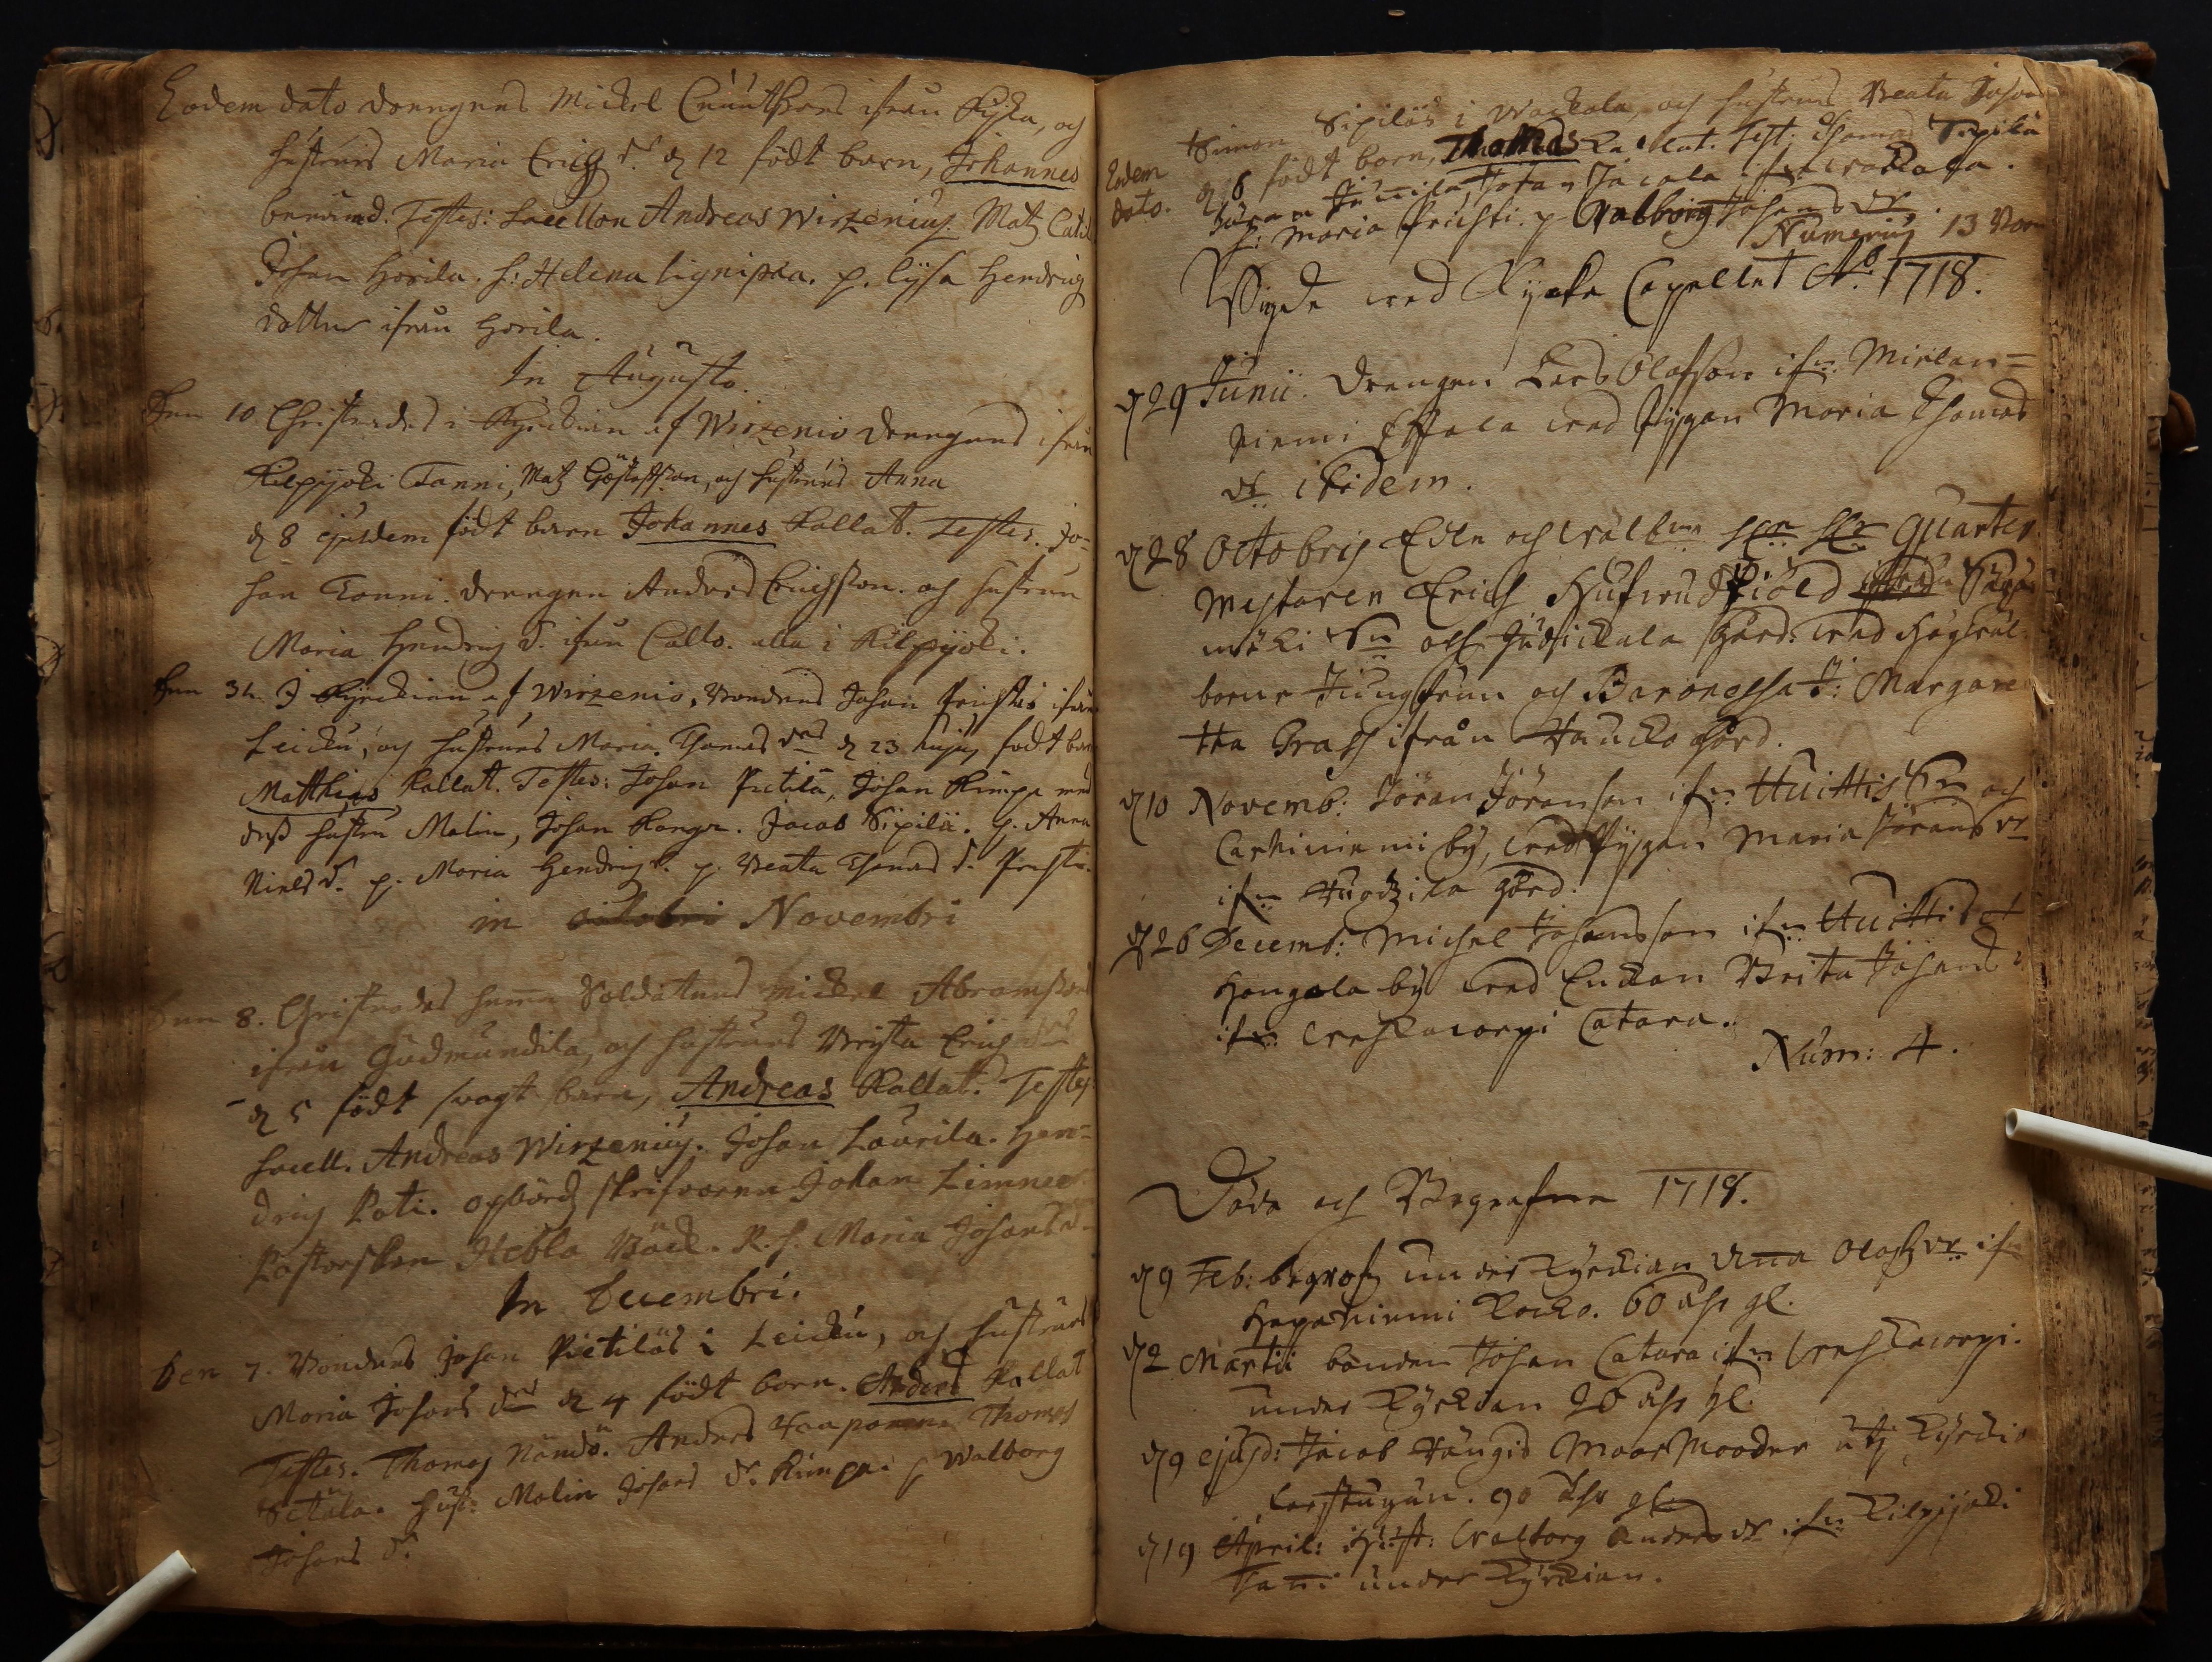 Eodem dato drengens Mickel Cnuuthsons ifrån Kyla, och
hustrus Maria Erichs d. d 12 födt barn, Johannes
benämd. Testes: Sacellan Andreas Wirzenius. Matz
Johan Horila. h: Helena p. Lysa Hendrichs
dotter ifrån Horila.
In Augusto.
Den 10 Christnades i Kyrckian af Wirzenio drengens ifrån
Kilpijoki Tanni, Matz Giöstafsson, och hustrus Anna
d 8 ejusdem födt barn Johannes Kallat. Testes. Jo-
han Tanni. drengen Anders Erichsson. och hustrun
Maria Hendrichs d. ifrån Callo. alla i Kilpijoki.
Den 31. I Kyrckian af Wirzenio, Bondens Johan ifrån
Leicku, och hustrus Maria Thomas drs d 23 hujus födt barn
Matthias Kallat. Testes: Johan Pietilä, Johan Rimpi med
dess hustru Malin, Johan Jacob Sipilä. p. Anna
Niels d. p. Maria Hendrichs d. p. Beata Thomas d.
in Octobri Novembri
Den 8. Christnades hema Soldattens Mickel Abramssons
ifrån Gudmundila, och hustrus Brijta Erichs drs
d 5 födt swagt barn, Andreas Kallat. Testes
Sacell. Andreas Wirzenius. Johan Laurila. Hen-
drich Pati. opbördz skrifvaren Johan Limnee
Pastorskan Hebla Bäck. K. h. Maria Johans d.
In Decembri.
Den 7. Bondens Johan Pietiläs i Leicku, och hustrus
Maria Johans drs d 4 födt barn. Anders Kallat
Testes. Thomas Nändö. Anders Haapaniemi Thomas
Setälä. hust: Malin Johans dr. Rimpi. p Walborg
Johans d.
Simon Sipiläs i Wackala, och hustrus Beata Johans
Eodem dato. d 8 födt barn, Thomas Kallat. Test: Thomas Sipilä
Johan Jacola ifrån Wackala.
h: Maria p Walborg Johans dr
Numerus 13 Barn
Wigde wed Kyrkia Capellet Ao. 1718.
d 29 Junii. Drengen Lars Olofsson ifrn Mielan-
niemi Eskola med Pygan Maria Thomas
dr ibidem.
d 28 Octobris Edle och wälbne Quarter
Mestaren Erich Hufwudskiöld ifrån
mäki Sn och Judickala Gård: med Högwäl-
borne Jungfrun och Baronessa J: Margare
tha Grass ifrån Haucko gård.
d 10 Novemb: Jöran Jöransson ifrn Huittis Sn och
Carhiniemi by, med Pygan Maria Jörans dr
ifrn Huodzila gård.
d 26 Decemb: Michel Johansson ifrn Huittis et
Hongola by med Enckan Brita Johans
ifrn Weskacorpi Catara.
Num: 4.
Döde och Begrafne 1718.
d 9 Feb: begrofs under kyrckian Anna Olofz dr ifrn
Haapaniemi Kocko. 60 åhr gl.
d 2 Martii bonden Johan Catara ifrn Weskacorpi.
under kyrckian 26 åhr gl.
d 9 ejusd: Jacob Haugis Moor Mooder utj kyrckio
Farstugun. 90 åhr gl.
d 19 April: Hust: Walborg Anders dr ifrn Kilpijoki
Tanni under kyrckian.